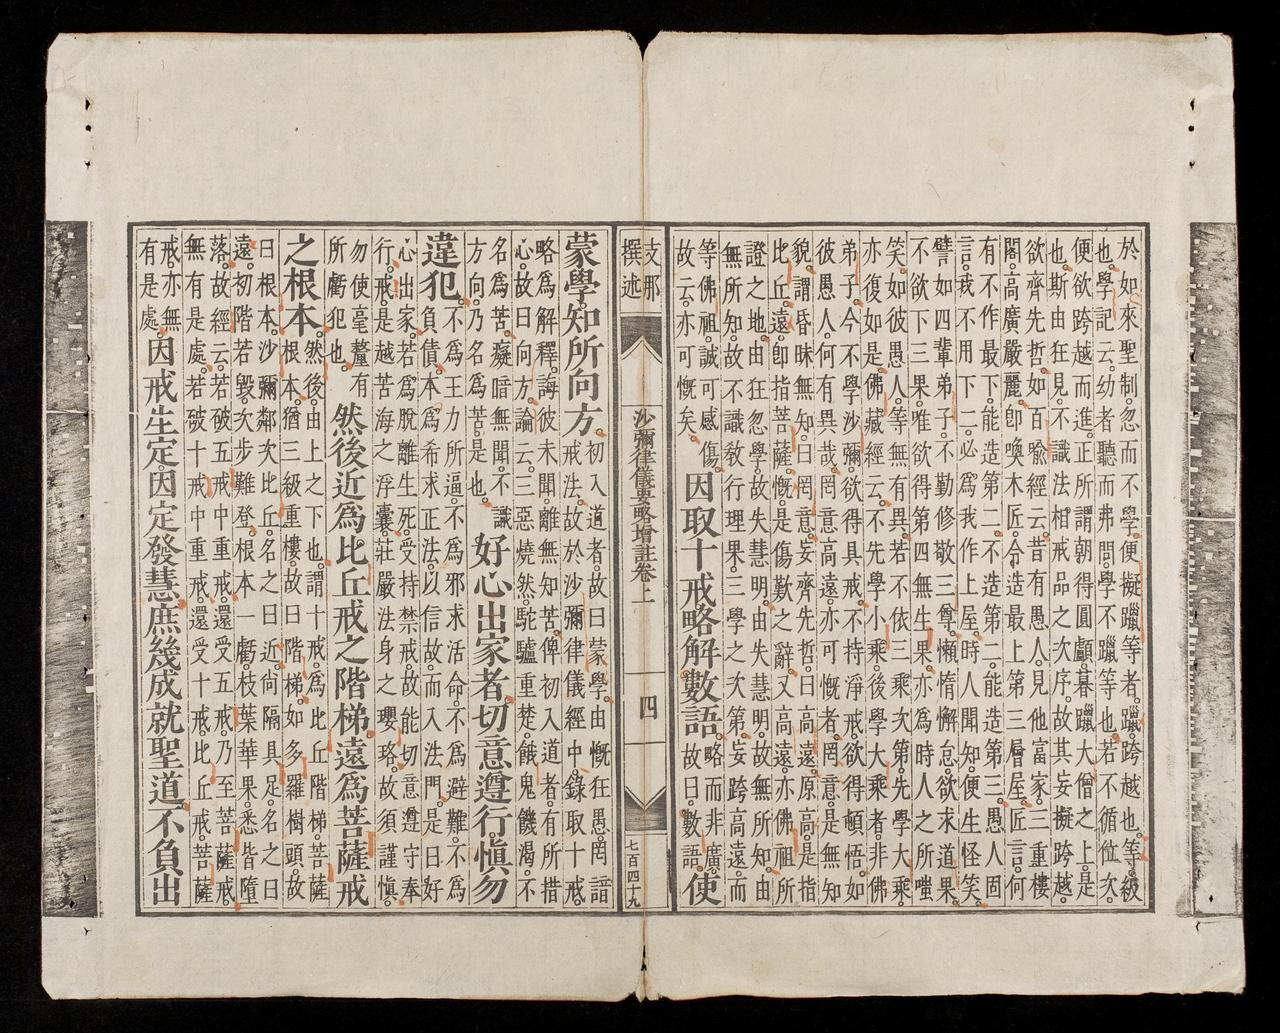 於如來聖制。忽而不學。便擬躐等者。躐跨越也。等級
也。學記云。幼者聽而弗問。學不躐等也。若不循位次。
便欲跨越而進。正所謂朝得圓顱。暮躐大僧之上。是
也。斯由狂見不識法相戒品之次序。故其妄擬跨越。
欲齊先哲。如百喻經云。昔有愚人。見他富家。三重樓
閣。高廣嚴麗。卽喚木匠。令造最上第三層屋。匠言。何
有不作最下。能造第二。不造第二。能造第三。愚人固
言。我不用下二。必為我作上屋。時人聞知。便生怪笑。
譬如四輩弟子。不勤修敬三尊。懶惰懈怠。欲求道果。
不欲下三果。唯欲得第四無生果。亦為時人之所嗤
笑。如彼愚人。等無有異。若不依三乘次第。先學大乘。
亦復如是。佛藏經云。不先學小乘。後學大乘者。非佛
弟子。今不學沙彌。欲得具戒。不持淨戒。欲得頓悟。如
彼愚人。何有異哉。罔意高遠。亦可慨者。罔意是無知
貌。謂昏昧無知。曰罔意。妄齊先哲。曰高遠。原高是指
比丘。遠。卽指菩薩。慨。是傷歎之辭。又高遠。亦佛祖所
證之地。由狂忽學。故失慧明。由失慧明。故無所知。由
無所知。故不識教行理果。三學之次第。妄跨高遠。而
等佛祖。誠可感傷。
故云。亦可慨矣。
因取十戒略解數語。
略而非廣。
故曰。數語。
使
支那
撰述
沙彌律儀要略增註卷上
四
七百四十九
蒙學。知所向方。
初入道者。故曰蒙學。由慨狂愚罔諳
戒法。故於沙彌律儀經中。錄取十戒。
略為解釋。誨彼未聞。離無知苦。俾初入道者。有所措
心。故曰向方。論云。三惡燒然。駝驢重楚。餓鬼饑渴。不
名為苦。癡暗無聞。不識
方向。乃名為苦。是也。
好心出家者。切意遵行。慎勿
違犯。
不為王力所逼。不為邪求活命。不為避難。不為
負債。本為希求正法。以信故而入法門。是曰好
心出家。若為脫離生死。受持禁戒。故能切意遵守奉
行。戒。是越苦海之浮囊。莊嚴法身之瓔珞。故須謹慎。
勿使毫釐有
所虧犯也。
然後近為比丘戒之階梯。遠為菩薩戒
之根本。
然後。由上之下也。謂十戒。為比丘階梯。菩薩
根本。猶三級重樓。故曰階梯。如多羅樹頭。故
曰根本。沙彌鄰次比丘。名之曰近。尚隔具足。名之曰
遠。初階若毀。次步難登。根本一虧。枝葉華果。悉皆隳
落。故經云。若破五戒中重戒。還受五戒。乃至菩薩戒。
無有是處。若破十戒中重戒。還受十戒。比丘戒。菩薩
戒。亦無
有是處。
因戒生定。因定發慧。庶幾成就聖道。不負出